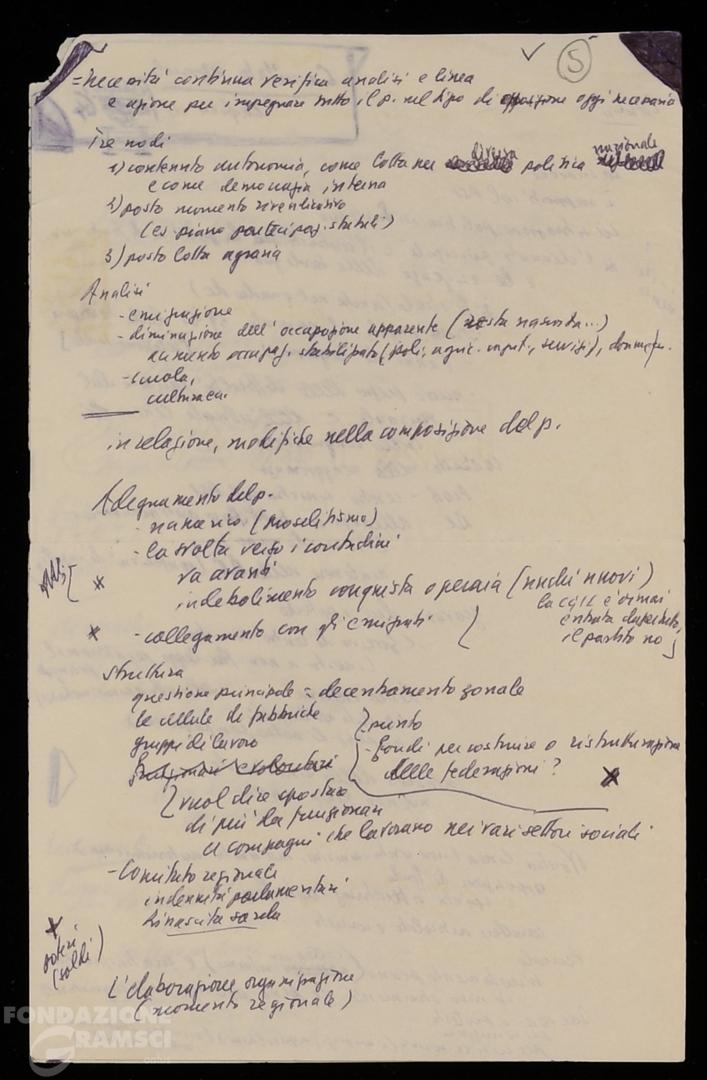 5
= necessità continua verifica analisi e linea
e azione per impegnare tutto il p. nel tipo di opposizione oggi necessaria
Tre nodi
1) contenuto autonomia, come lotta per diversa politica nazionale
e come democrazia interna
2) posto momento rivendicativo
(es. piano partecipaz. statali)
3) posto lotta agraria
Analisi
- emigrazione
- diminuzione dell'occupazione apparente (resta nascosta...)
aumento occupaz. stabilizzata (stab., agric. , servizi), donne
- scuola,
cultura ecc.
in relazione, modifiche nella composizione del p.
Adeguamento del p.
- numerico (proselitismo)
- la svolta verso i contadini
va avanti
indebolimento conquista operaia (nuclei nuovi)
la CGIL è ormai
entrata dapertutto,
il partito no
- collegamento con gli emigrati
Struttura
questione principale = decentramento zonale
le cellule di fabbriche
gruppi di lavoro
funzionari e volontari
- punto
- fondi per costruire o ristrutturazione
delle federazioni?
vuol dire spostare
di più da funzionari
a compagni che lavorano nei vari settori sociali
- Comitato regionale
indennità parlamentari
Rinascita sarda
(soldi)
L'elaborazione organizzazione
(momento regionale)
FONDAZIONE
GRAMSCI